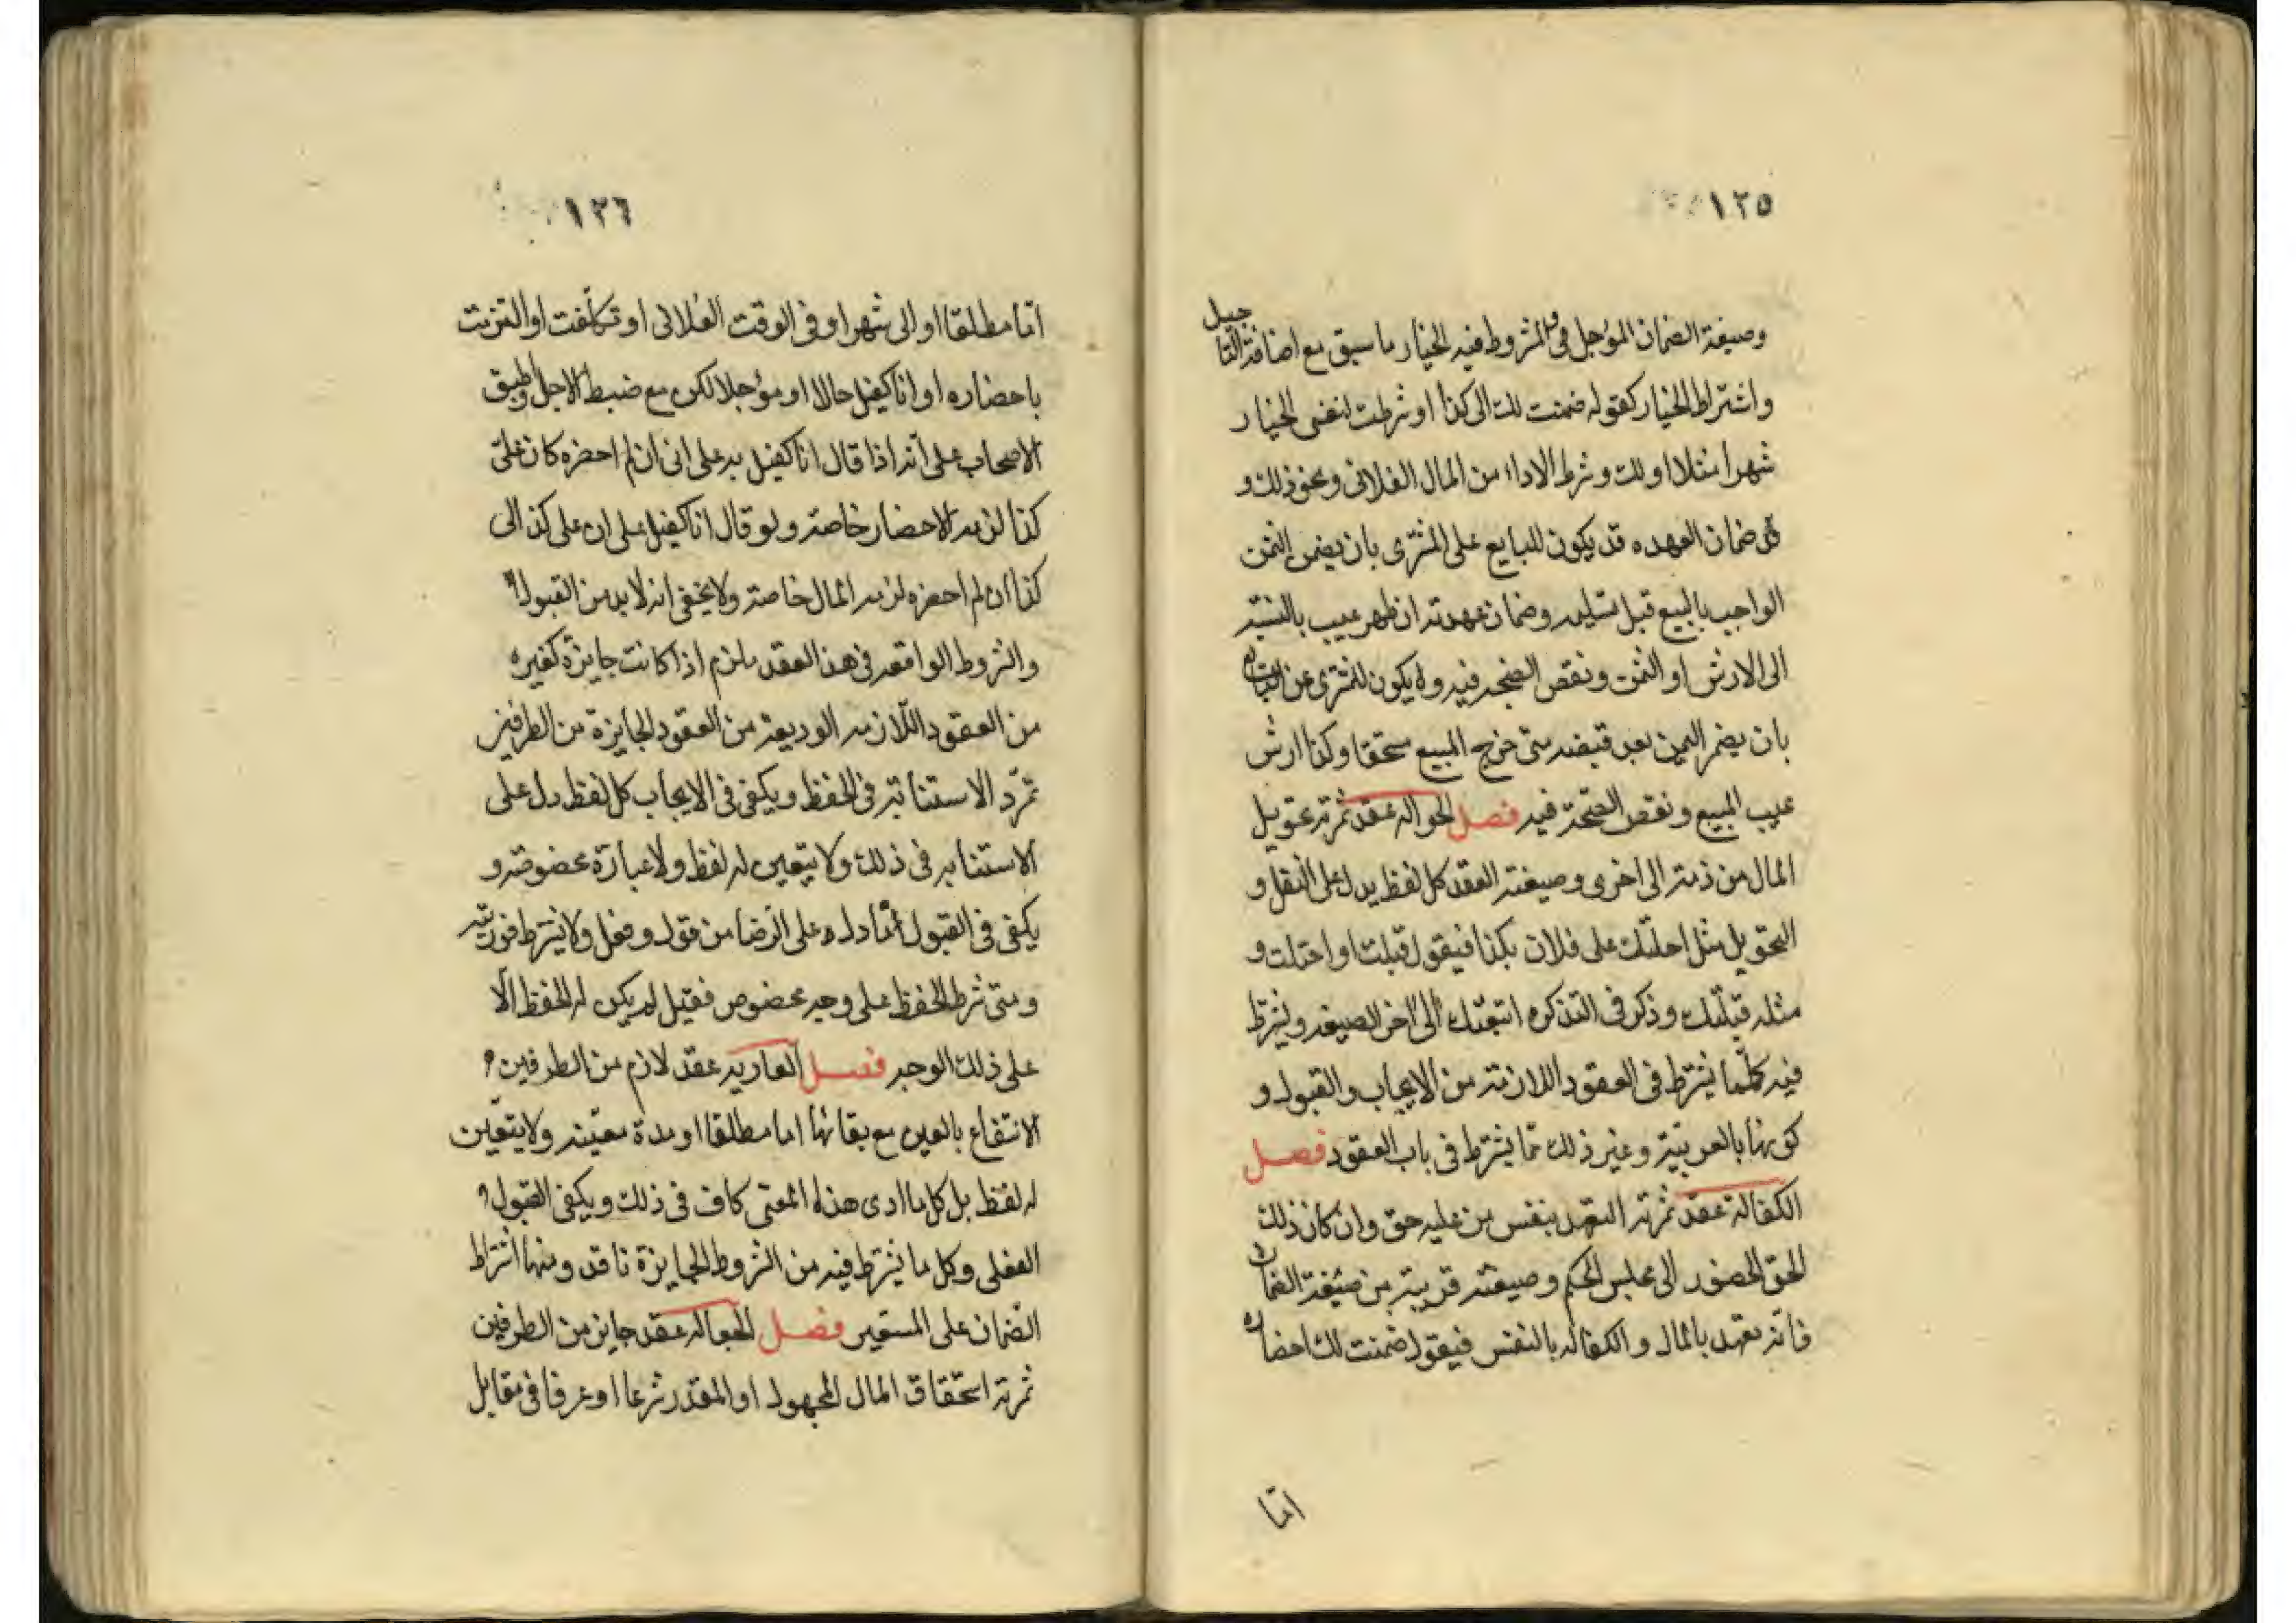 ١٢٥
وصيغة الضمان المؤجل في المشروط فيه الخيار ما سبق مع اضافة التاجيل
واشتراط الخيار كقوله ضمنت لك الى كذا او شرطت لنفسى الخيار
شهرا مثلا او لك وشرط الاداء من المال الفلانى ونحو ذلك و
في ضمان العهده قد يكون للبايع على المشترى بان يضمن الثمن
الواجب بالمبيع قبل تسليمه وضمان عهدته ان ظهر عيب بالنسبة
الى الارش او الثمن ونقص الصنجه فيه وقد يكون للمشترى عن البايع
بان يضمن الثمن بعد قبضه متى خرج المبيع مستحقا وكذا ارش
عيب المبيع ونقص الصنجة فيه فصل الحواله عقد ثمرته تحويل
المال من ذمة الى اخرى وصيغته العقد كل لفظ يدل على النقل و
التحويل مثل احلتك على فلان بكذا فيقول قبلت او احتلت و
مثله قبلتك وذكر في التذكره اتبعتك الى اخر الصيغه ويشترط
فيه كلما يشترط في العقود اللازمة من الايجاب والقبول و
كونها بالعربية وغير ذلك مما يشترط في باب العقود فصل
الكفالة عقد ثمرته التعهد بنفس من عليه حق وان كان ذلك
الحق الحضور الى مجلس الحكم وصيغته قريبة من صيغة الضمان
فانه تعهد بالمال والكفاله بالنفس فيقول ضمنت لك احضاره
اما
١٢٦
اما مطلقا او الى شهر او في الوقت الفلانى او تكلفت او التزمت
باحضاره او انا كفيل حالا او مؤجلا لكن مع ضبط الاجل واطبق
الاصحاب على انه اذا قال انا كفيل به على انى ان لم احضره كان على
كذا لزمه الاحضار خاصة ولو قال انا كفيل على ان على كذا الى
كذا ان لم احضره لزمه المال خاصة ولا يخفى انه لا بد من القبول
والشروط الواقعه في هذا العقد يلزم اذا كانت جايزة كغيره
من العقود اللازمه الوديعة من العقود الجايزة من الطرفين
ثمرته الاستنابة في الحفظ ويكفى في الايجاب كل لفظ دل على
الاستنابه في ذلك ولا يتعين له لفظ ولا عبارة مخصوصه و
يكفى في القبول ما دل على الرضا من قول وفعل ولا يشترط فوريته
ومتى شرط الحفظ على وجه مخصوص فقيل لم يكن له الحفظ الا
على ذلك الوجه فصل العاريه عقد لازم من الطرفين
الانتفاع بالعين مع بقائها اما مطلقا او مدة معينه ولا يتعين
له لفظ بل كل ما ادى هذا المعنى كاف في ذلك ويكفى القبول
الفعلى وكل ما يشترط فيه من الشروط الجايزة نافذ ومنها اشتراط
الضمان على المستعير فصل الجعاله عقد جايز من الطرفين
ثمرته استحقاق المال المجهول او المقدر شرعا او عرفا في مقابل